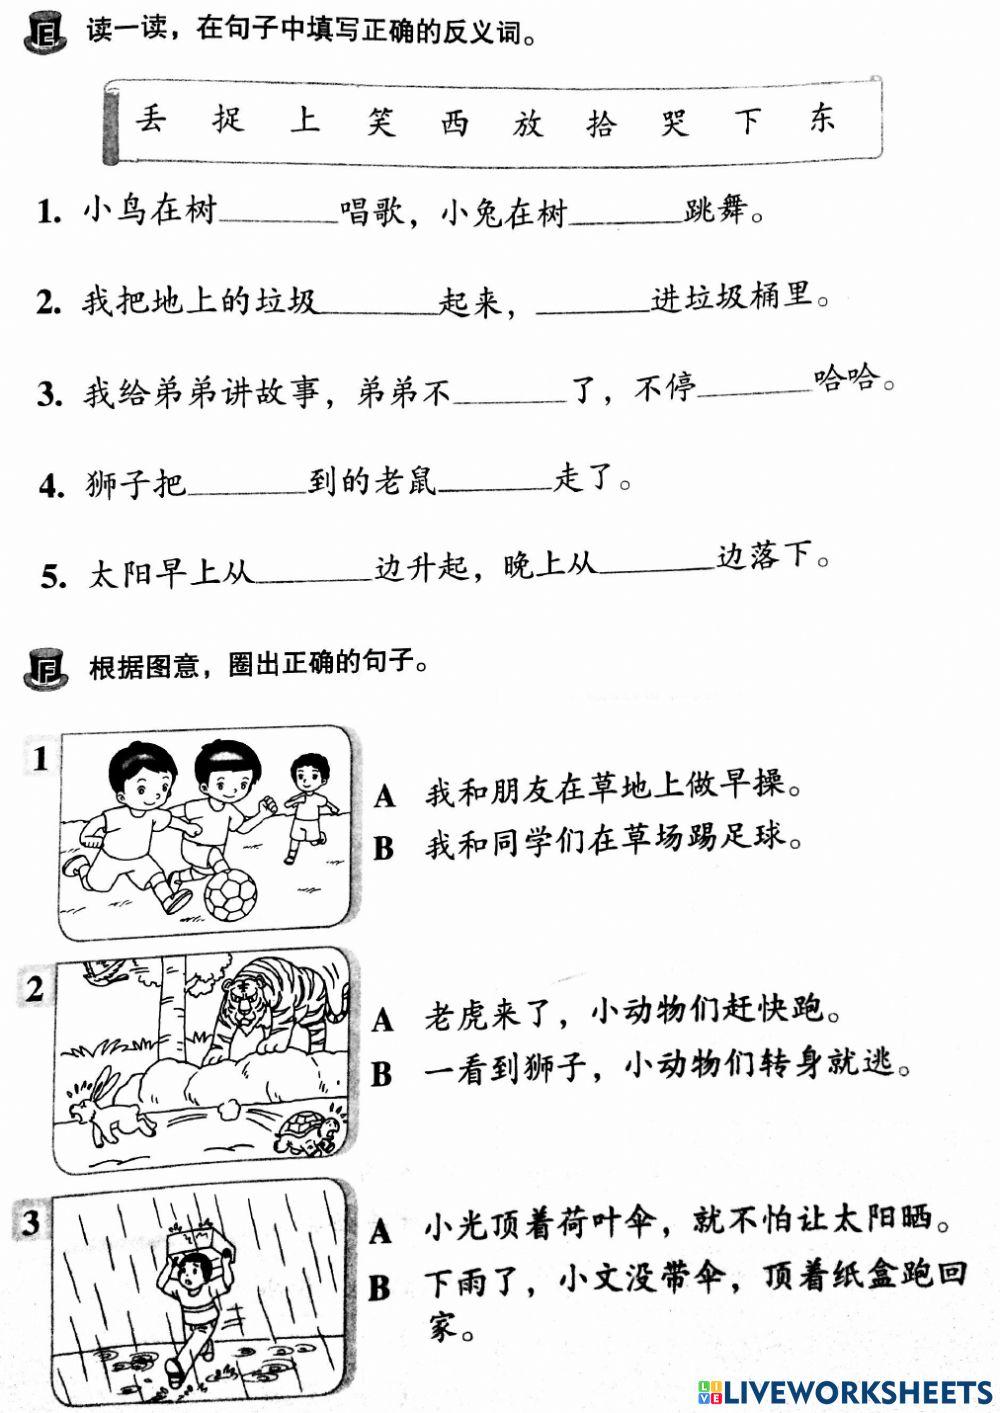 E 读一读，在句子中填写正确的反义词。
丢 捉 上 笑 西 放 拾 哭 下 东
1. 小鸟在树________唱歌，小兔在树________跳舞。
2. 我把地上的垃圾________起来，________进垃圾桶里。
3. 我给弟弟讲故事，弟弟不________了，不停________哈哈。
4. 狮子把________到的老鼠________走了。
5. 太阳早上从________边升起，晚上从________边落下。
F 根据图意，圈出正确的句子。
1
A 我和朋友在草地上做早操。
B 我和同学们在草场踢足球。
2
A 老虎来了，小动物们赶快跑。
B 一看到狮子，小动物们转身就逃。
3
A 小光顶着荷叶伞，就不怕让太阳晒。
B 下雨了，小文没带伞，顶着纸盒跑回
家。
LIVE LIVEWORKSHEETS